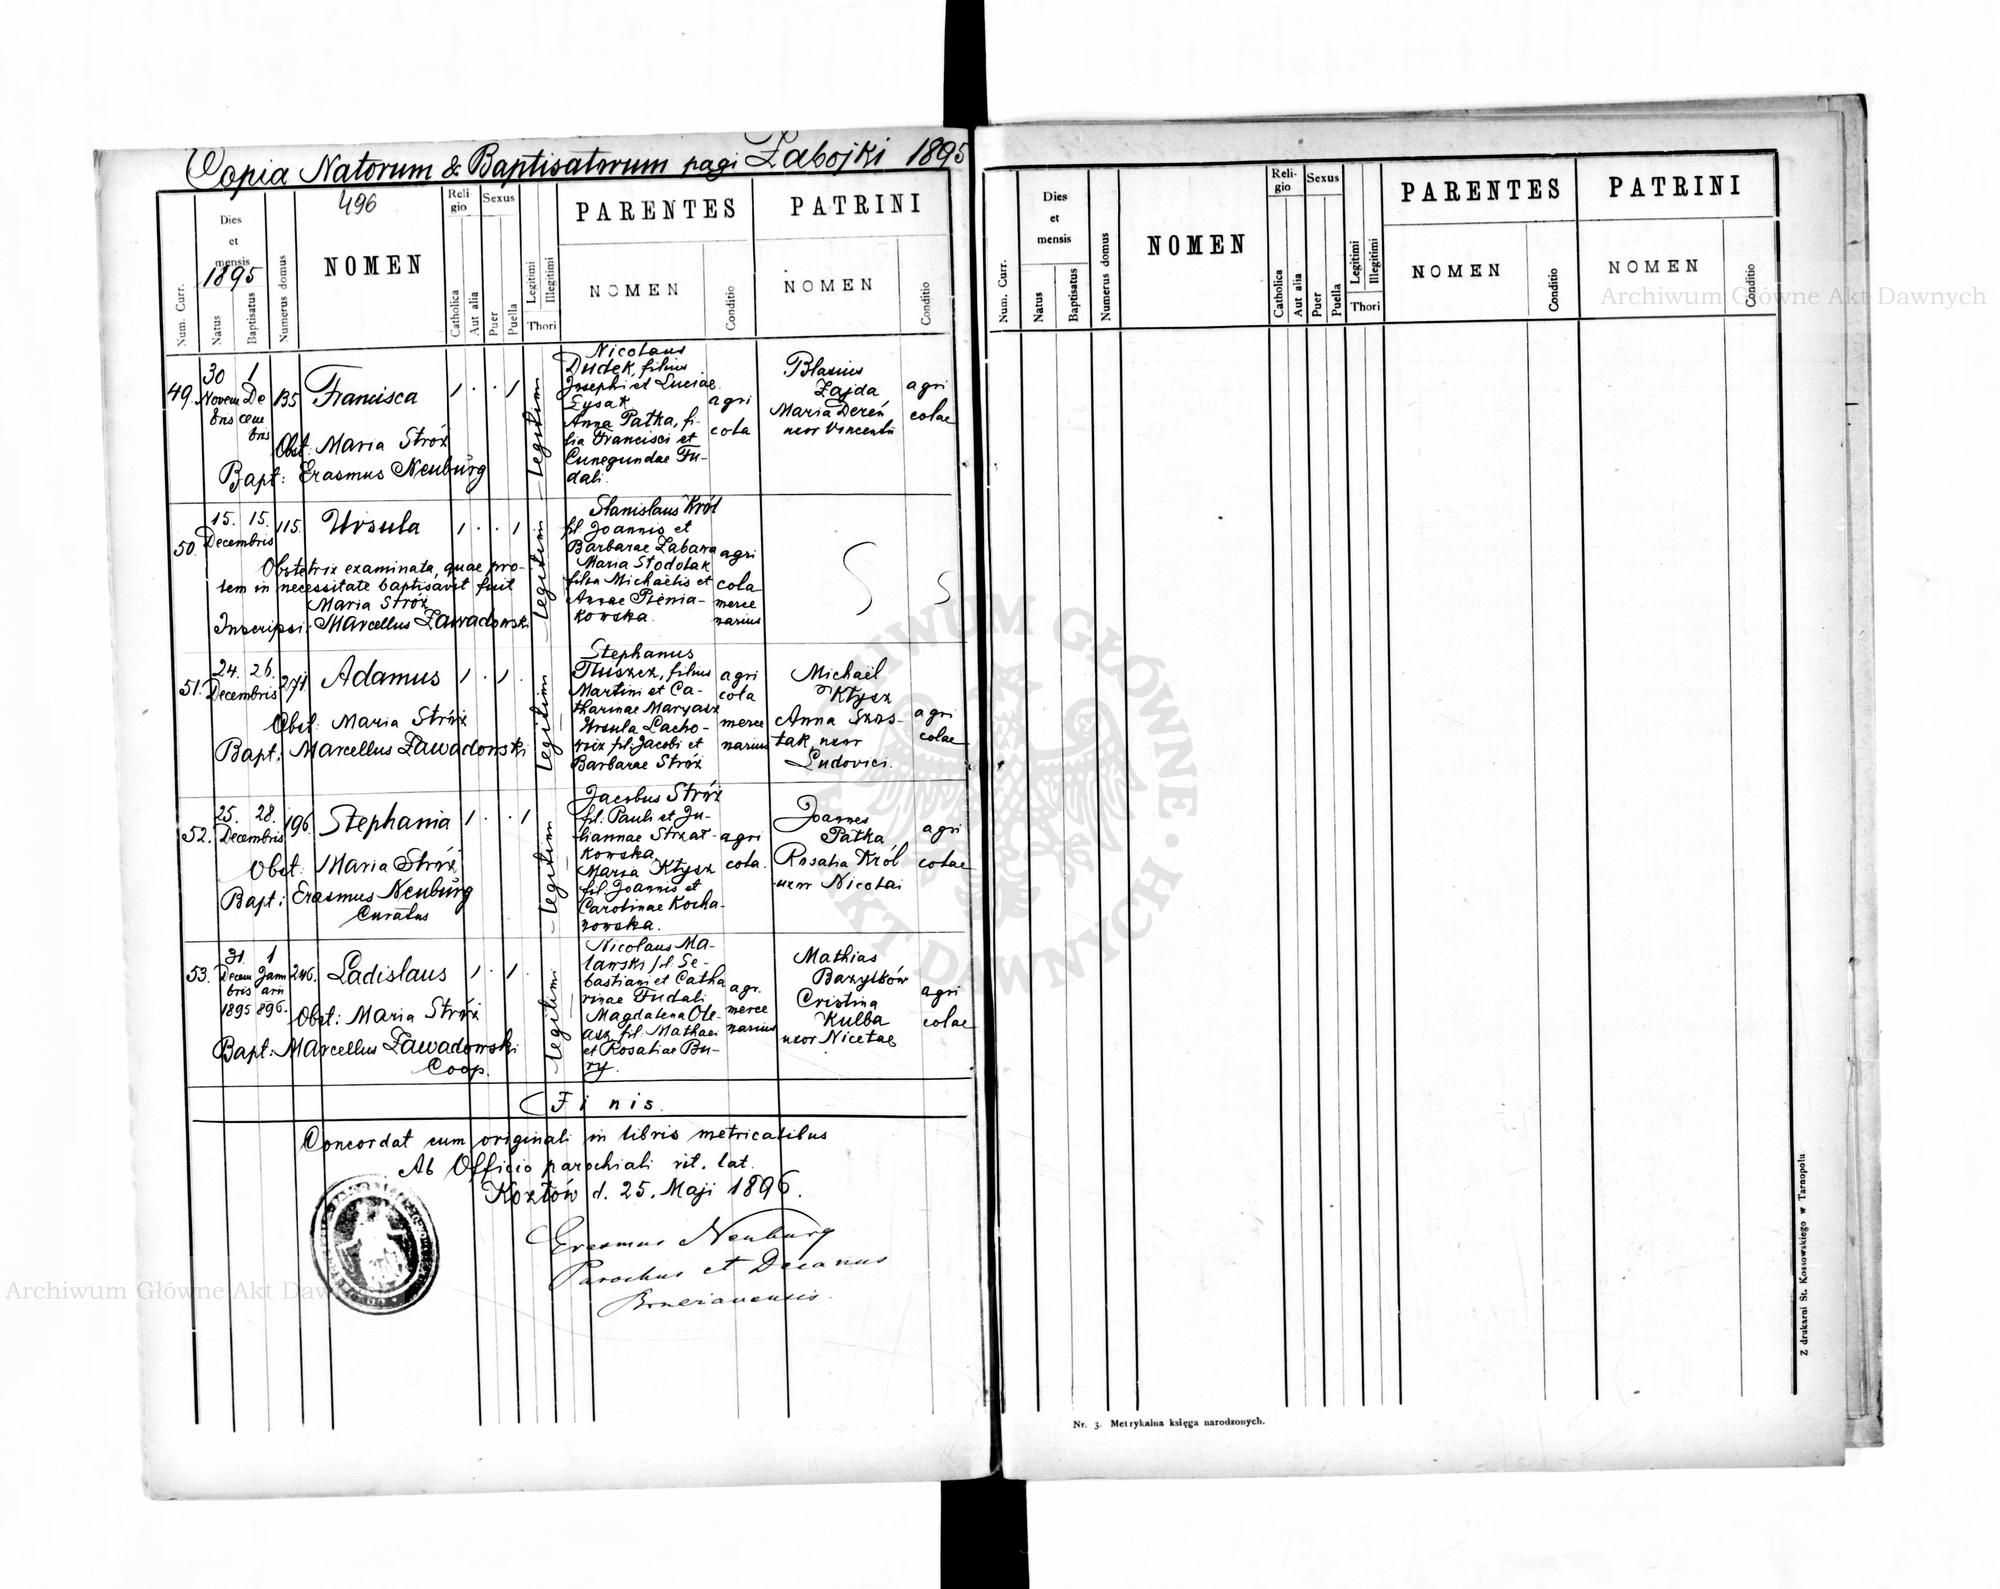 Copia Natorum & Baptisatorum pagi Zabojki 1895
496
Num. Curr.
Dies
et
mensis
1895
Natus
Baptisatus
Numerus domus
NOMEN
Religio
Catholica
Aut alia
Sexus
Puer
Puella
Legitimi
Illegitimi
Thori
PARENTES
NOMEN
Conditio
PATRINI
NOMEN
Conditio
49.
30 1
Novem De
bris cem
bris
135
Francisca
1 . . 1
legitimi
Obst: Maria Stróż
Bapt: Erasmus Neuburg
Nicolaus
Dudek, filius
Josephi et Luciae
Łysak
Anna Patka, fi-
lia Francisci et
Cunegundae Fu-
dali.
agri
cola
Blasius
Zajda
Maria Dereń
uxor Vincentii
agri
colae
50.
15. 15.
Decembris
115.
Ursula
1 . . 1
legitimi
Obstetrix examinata, quae pro-
lem in necessitate baptisavit fuit
Maria Stróż
Inscripsi: Marcellus Zawadowski
Stanislaus Król
fil. Joannis et
Barbarae Zabawa
Maria Stodolak
filia Michaëlis et
Annae Pienia-
kowska.
agri
cola
merce
narius
51.
24. 26.
Decembris
271
Adamus
1 . 1 .
legitimi
Obst: Maria Stróż
Bapt: Marcellus Zawadowski
Stephanus
Tłuszcz, filius
Martini et Ca-
tharinae Maryasz
Ursula Lacho-
wicz fil. Jacobi et
Barbarae Stróż
agri
cola
merce
narius
Michaël
Kłysz
Anna Szos-
tak uxor
Ludovici.
agri
colae
52.
25. 28.
Decembris
196.
Stephania
1 . . 1
legitimi
Obst: Maria Stróż
Bapt: Erasmus Neuburg
Curatus
Jacobus Stróż
fil. Pauli et Ju-
liannae Strzał-
kowska
Maria Kłysz
fil. Joannis et
Carolinae Kocha-
nowska.
agri
cola.
Joannes
Patka
Rosalia Król
uxor Nicolai
agri
colae
53.
31. 1
Decem Janu
bris arii
1895 896.
246.
Ladislaus
1 . 1 .
legitimi
Obst: Maria Stróż
Bapt: Marcellus Zawadowski
Coop.
Nicolaus Ma-
lawski fil. Se-
bastiani et Catha
rinae Fudali
Magdalena Ole-
asz, fil. Mathaei
et Rosaliae Bu-
ry.
agr.
merce
narius
Mathias
Bazylków
Cristina
Kulba
uxor Nicetae
agri
colae
Finis.
Concordat cum originali in libris metricalibus
Ab Officio parochiali rit. lat.
Kozłów d. 25. Maji 1896.
Erasmus Neuburg
Parochus et Decanus
Brzeżanensis.
Num. Curr.
Dies
et
mensis
Natus
Baptisatus
Numerus domus
NOMEN
Religio
Catholica
Aut alia
Sexus
Puer
Puella
Legitimi
Illegitimi
Thori
PARENTES
NOMEN
Conditio
PATRINI
NOMEN
Conditio
Nr. 3. Metrykalna księga narodzonych.
Z drukarni St. Kossowskiego w Tarnopolu
Archiwum Główne Akt Dawnych
Archiwum Główne Akt Dawnych
ARCHIWUM GŁÓWNE AKT DAWNYCH